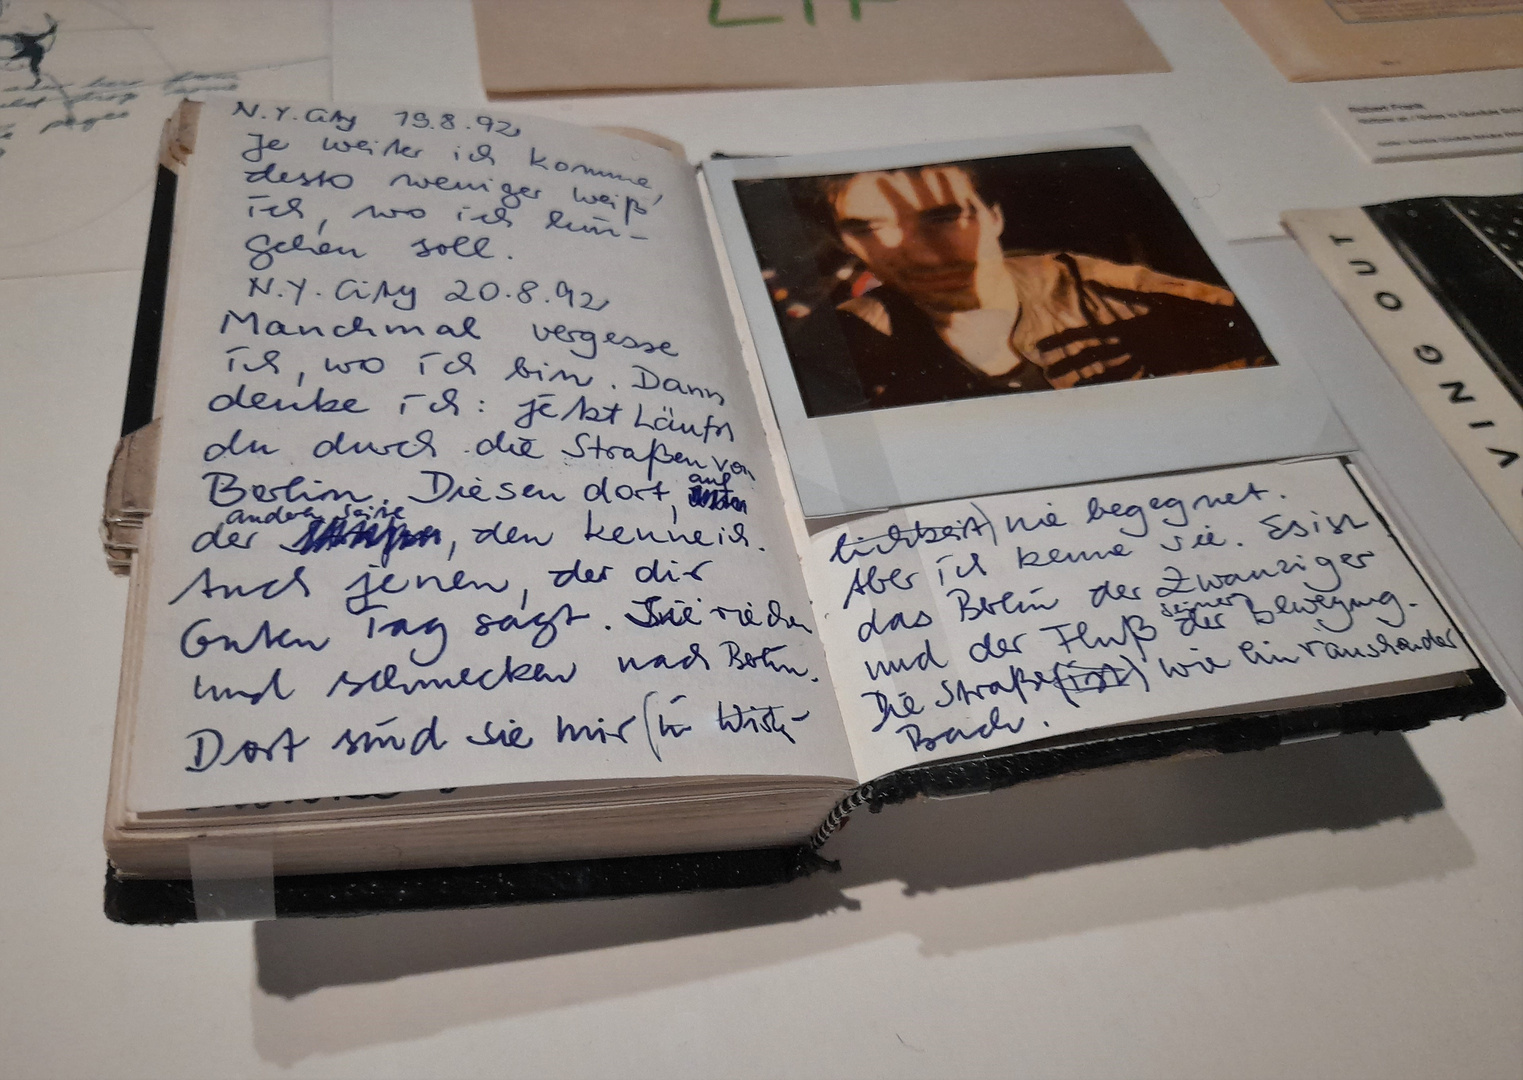 LIP
N.Y. City 19.8.92
Je weiter ich komme,
desto weniger weiß
ich, wo ich hin-
gehen soll.
N.Y. City 20.8.92
Manchmal vergesse
ich, wo ich bin. Dann
denke ich: jetzt läufst
du durch die Straßen von
Berlin. Diesen dort, auf
der andren Seite, den kenne ich.
Auch jenen, der dir
Guten Tag sagt. Sie riechen
und schmecken nach Berlin.
Dort sind sie mir (in Wirk-
lichkeit) nie begegnet.
Aber ich kenne sie. Es ist
das Berlin der Zwanziger
und der Fluß seiner Bewegung.
Die Straße (ist) wie ein rauschender
Bach.
Robert Frank
VING OUT
pages